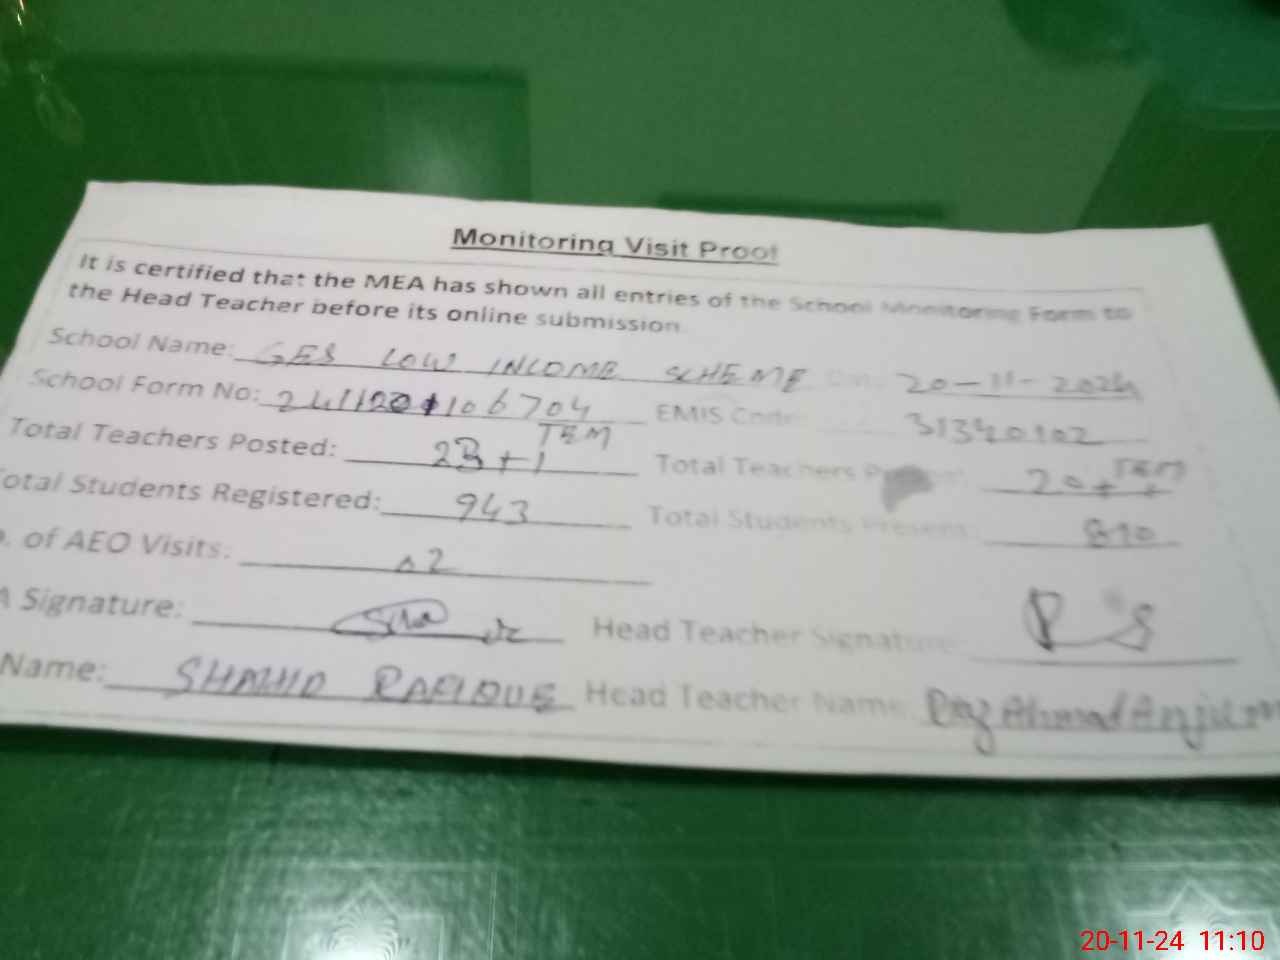 Monitoring Visit Proof
It is certified that the MEA has shown all entries of the School Monitoring Form to
the Head Teacher before its online submission.
School Name: GES LOW INCOME SCHEME 20-11-2024
School Form No: EMIS Code: 31340102
Total Teachers Posted: 23+1 TEM Total Teachers 20+
Total Students Registered: 943 Total Students Present: 810
of AEO Visits: 02
Signature: Head Teacher Signature
Name: SHAHID RAFIQUE Head Teacher Name: Ahmad Anjum
20-11-24 11:10